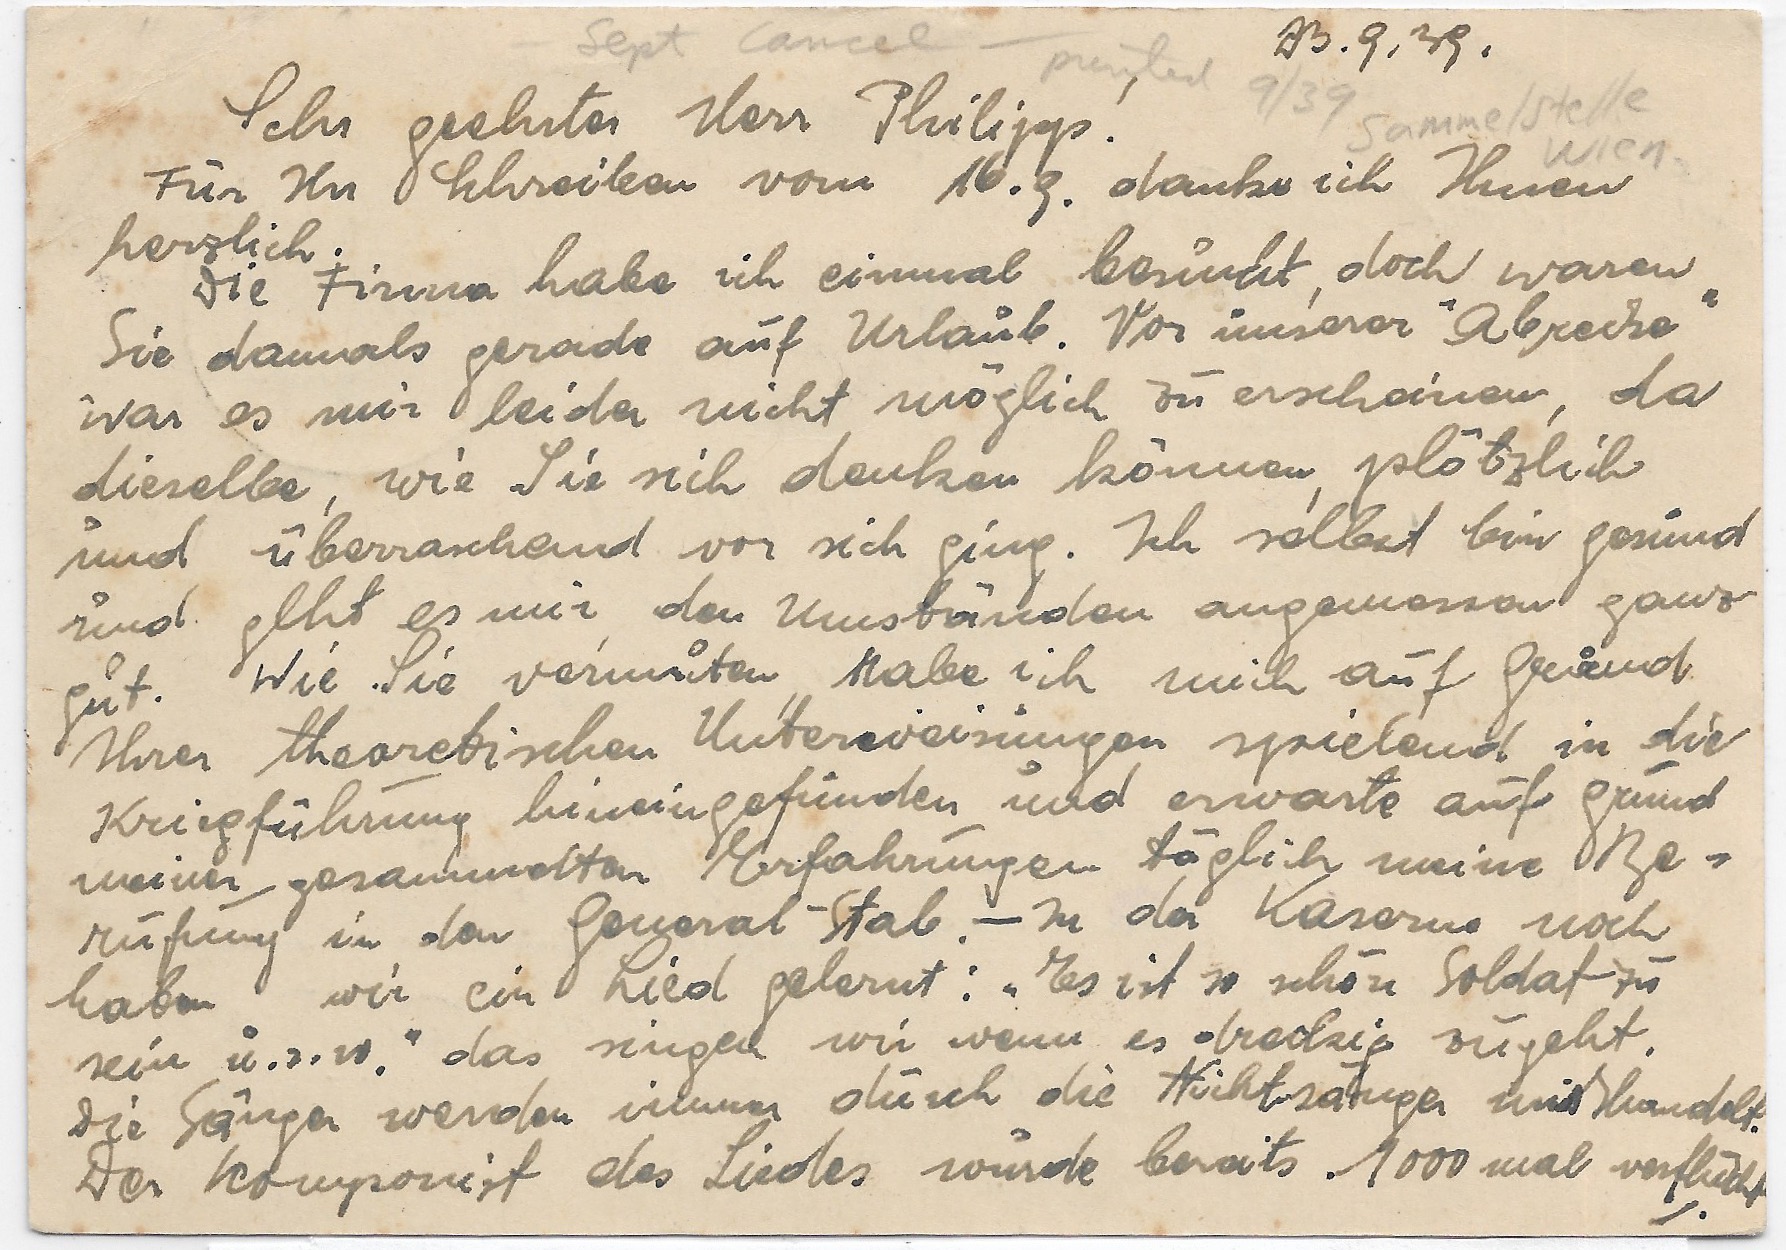 - Sept Cancel - printed 9/39
Sammelstelle
Wien.
23.9.39.
Sehr geehrter Herr Philipp!
Für Ihr Schreiben vom 16.9. danke ich Ihnen
herzlich.
Die Firma habe ich einmal besucht, doch waren
Sie damals gerade auf Urlaub. Vor unserer "Abreise"
war es mir leider nicht möglich zu erscheinen, da
dieselbe, wie Sie sich denken können, plötzlich
und überraschend vor sich ging. Ich selbst bin gesund
und geht es mir, den Umständen angemessen ganz
gut. Wie Sie vermuten, habe ich mich auf Grund
Ihrer theoretischen Unterweisungen spielend in die
Kriegführung hineingefunden und erwarte auf grund
meiner gesammelten Erfahrungen täglich meine Be-
rufung in den General-Stab. – In der Kaserne noch
haben wir ein Lied gelernt: „Es ist so schön Soldat zu
sein u.s.w." das singen wir wenn es dreckig zugeht.
Die Sänger werden immer durch die Nichtsänger mißhandelt.
Der Komponist des Liedes wurde bereits 1000 mal verflucht
!.